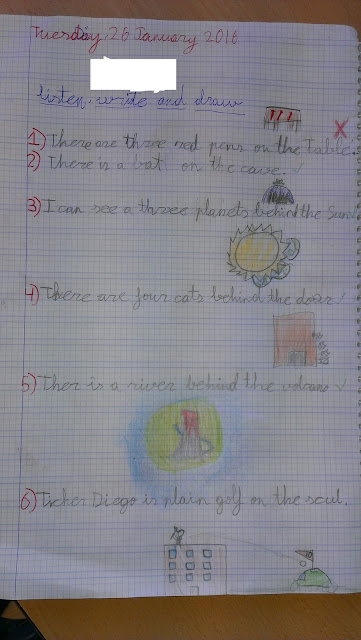 Tuesday 26 January 2016
listen, write and draw
1) There are three red pens on the table.
2) There is a bat on the cave. ✓
3) I can see a three planets behind the Sun ✓
4) There are four cats behind the door ✓
5) Ther is a river behind the volcano ✓
6) Ticher Diego is plain golf on the scul.